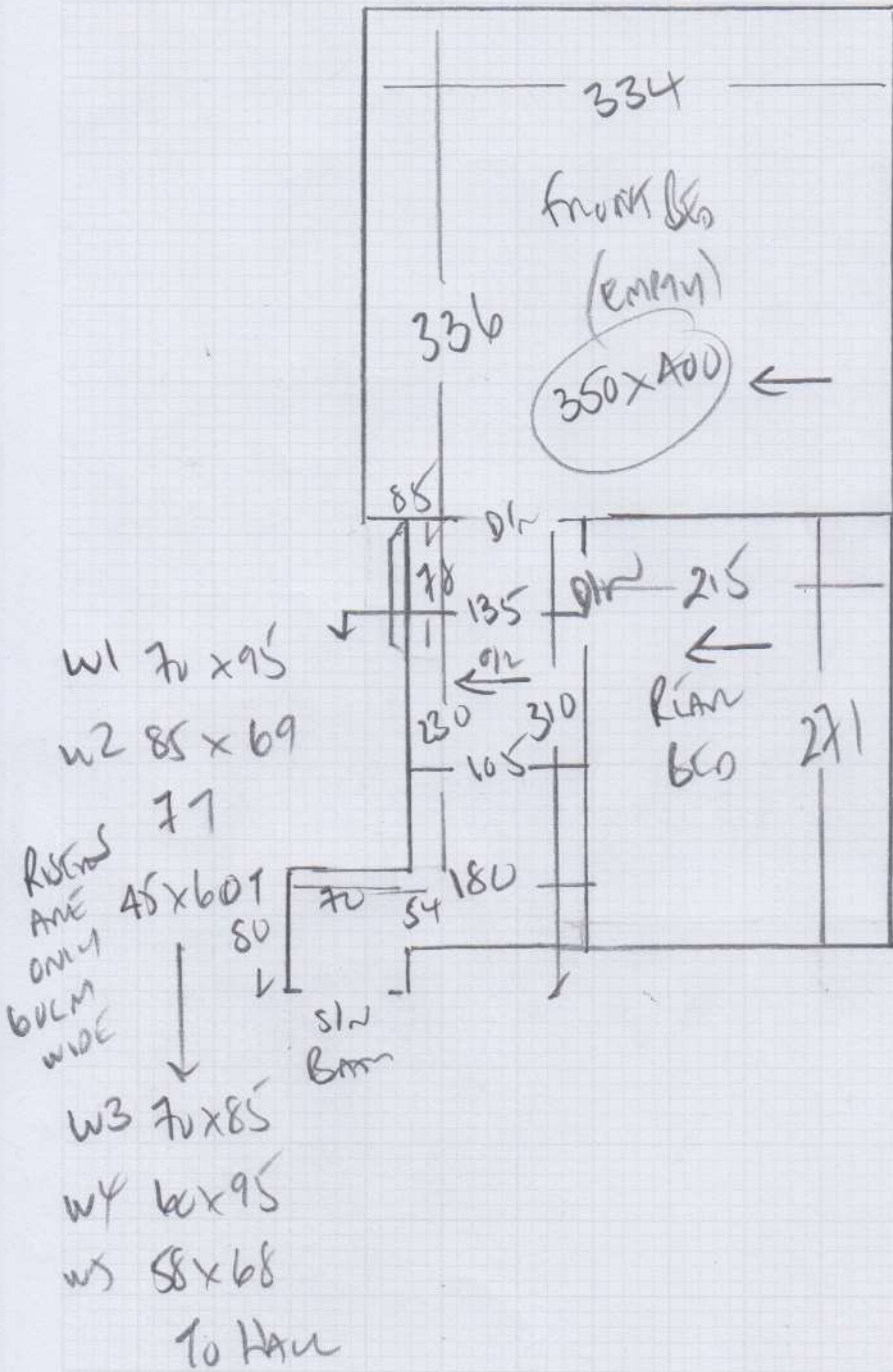 334
FRONT BED
(EMPTY)
336
350 X 400
85
D/R
78
135
D/R
215
W1 70 X 95
230
310
REAR
BED
271
W2 85 X 69
105
77
RISERS
ARE
ONLY
60CM
WIDE
70
54
180
80
S/R
BATH
W3 70 X 85
W4 60 X 95
W5 58 X 68
TO HALL